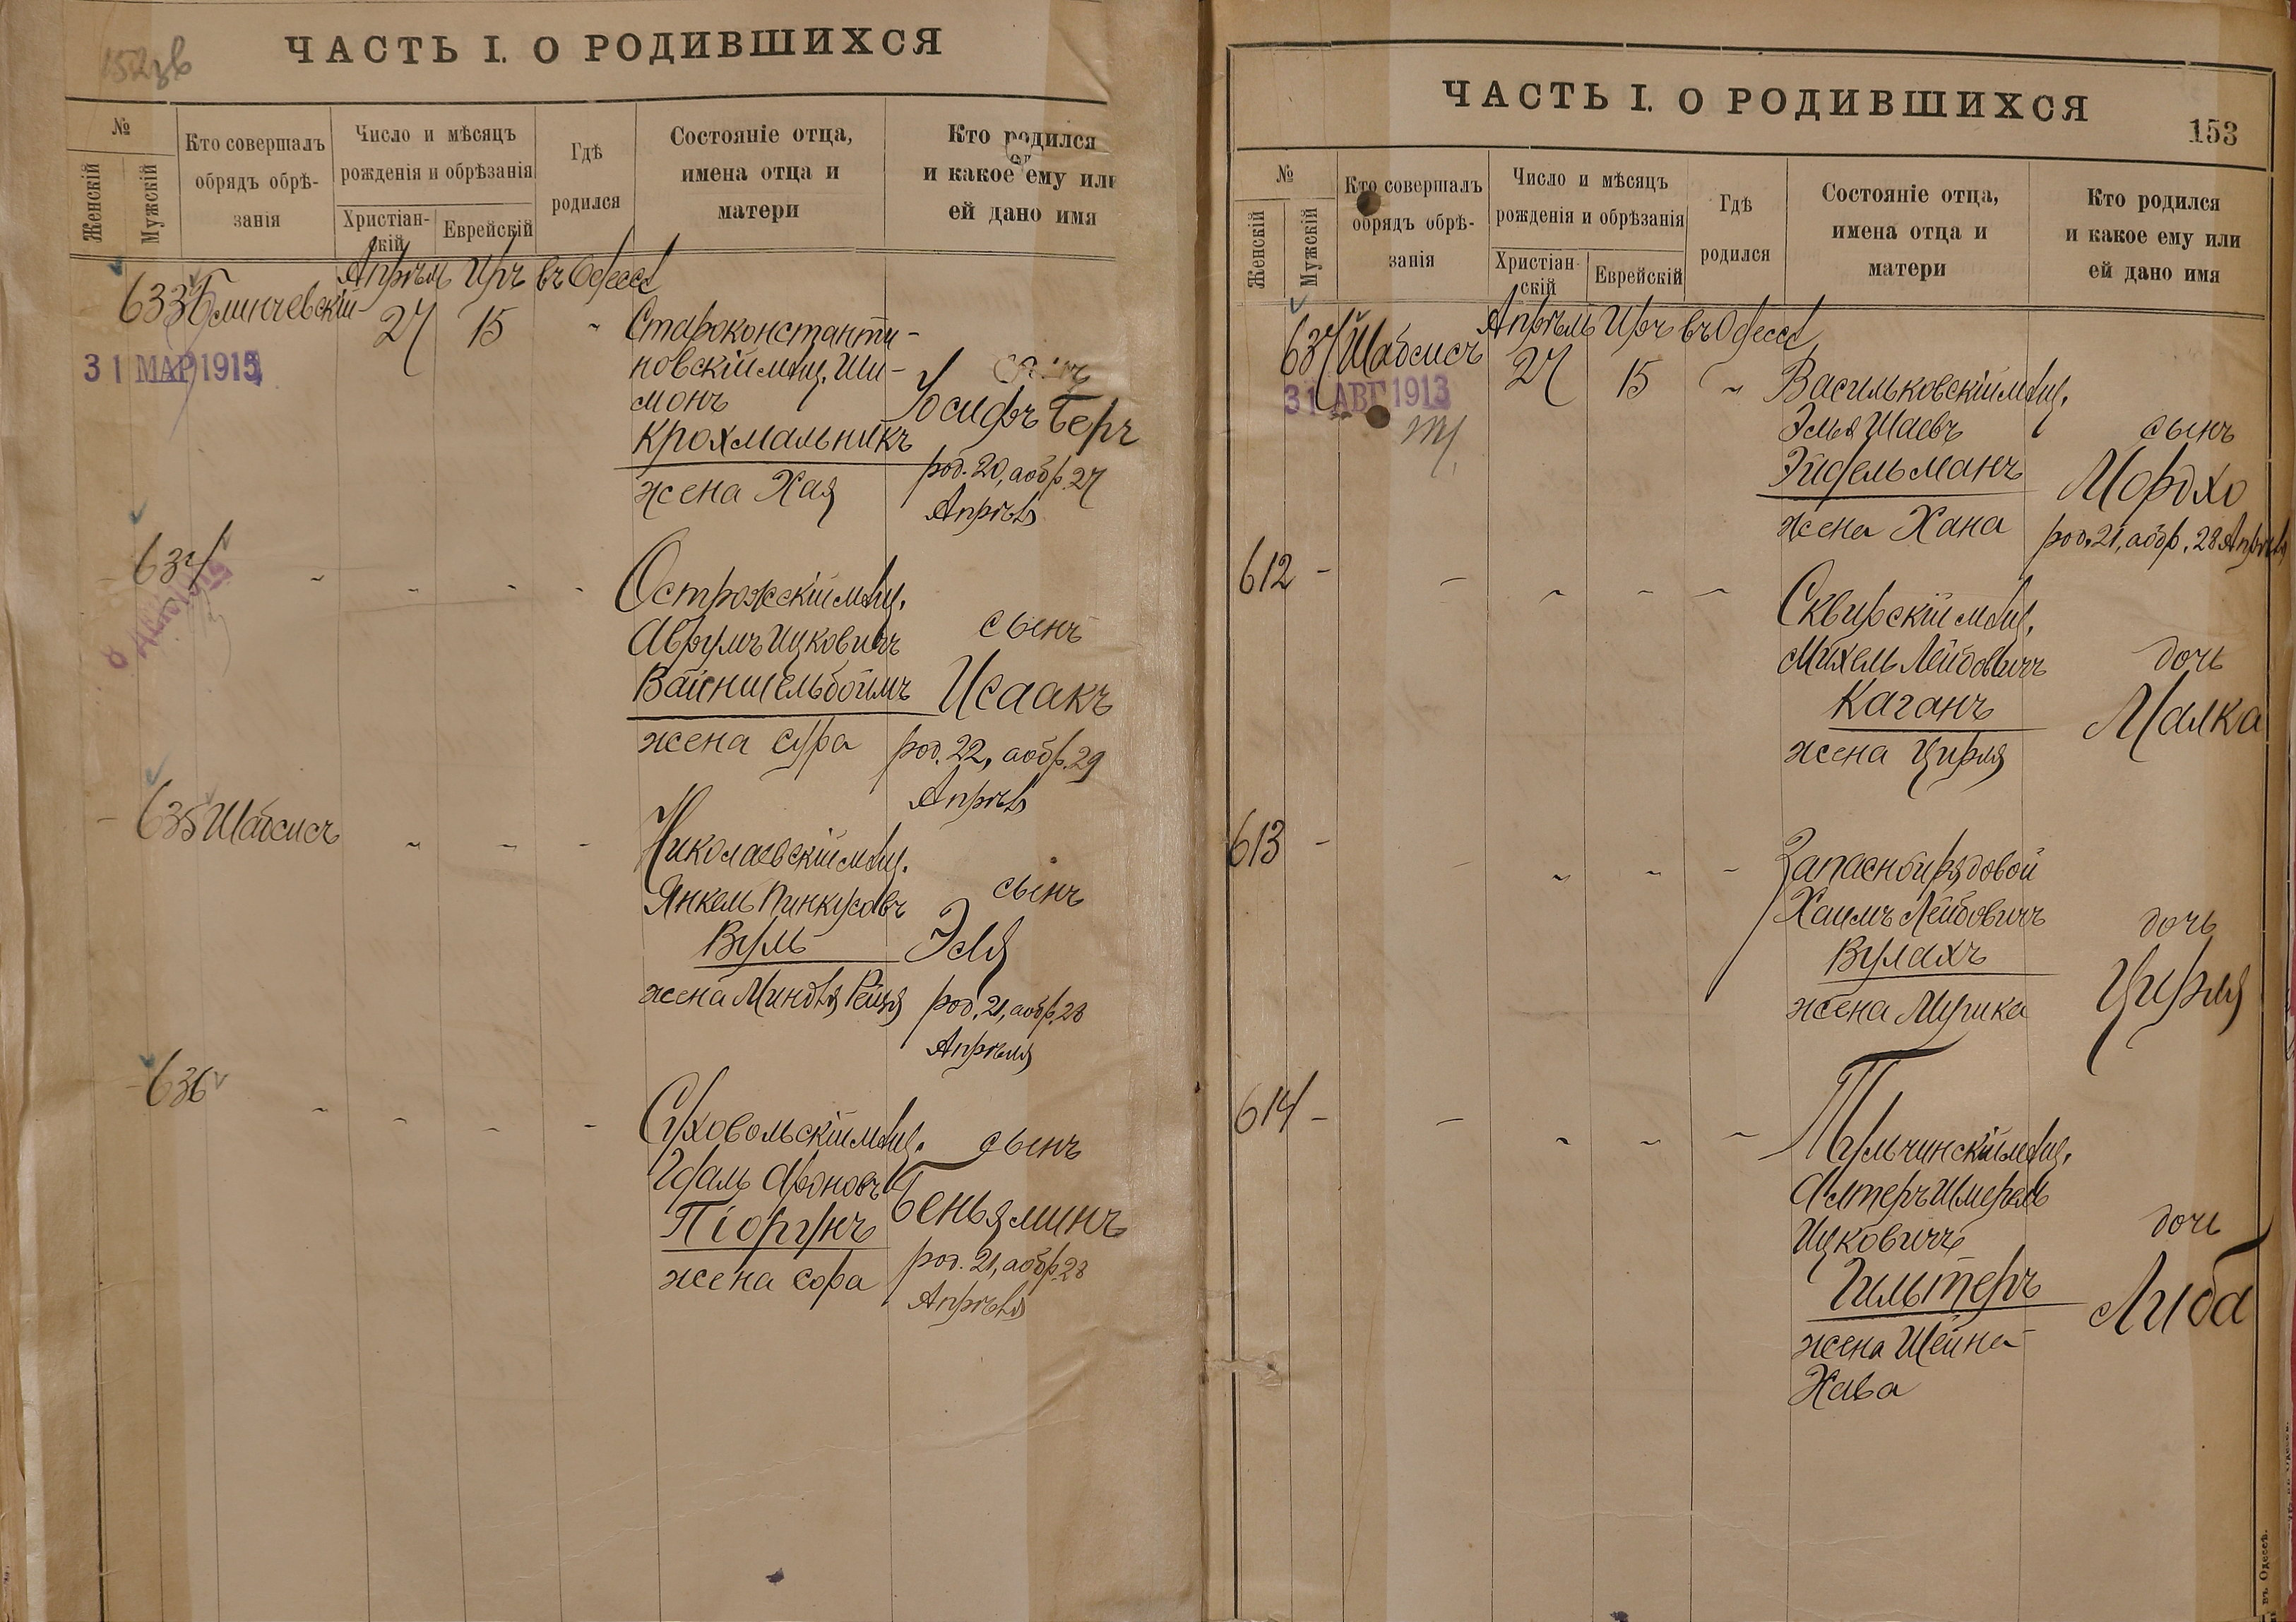 152 зв
ЧАСТЬ I. О РОДИВШИХСЯ
№
Женскій
Мужскій
Кто совершалъ
обрядъ обрѣ-
занія
Число и мѣсяцъ
рожденія и обрѣзанія
Христіан-
скій
Еврейскій
Гдѣ
родился
Состояніе отца,
имена отца и
матери
Кто родился
и какое ему или
ей дано имя
Апрѣль Иръ въ Одессѣ
633 Блинчевскій 27 15 "
31 МАР 1915
Староконстанти-
новскій мѣщ. Ши-
монъ
Крохмальникъ
жена Хая
сынъ
Іосифъ Беръ
род. 20, а обр. 27
Апрѣля
634
Острожскій мѣщ.
Аврумъ Ицковичъ
Вайншельбоймъ
жена Сура
сынъ
Исаакъ
род. 22, а обр. 29
Апрѣля
635 Шабсисъ
Николаевскій мѣщ.
Янкель Пинкусовъ
Вуль
жена Миндля Рейзя
сынъ
Эля
род. 21, а обр. 28
Апрѣля
636
Суховольскій мѣщ.
Гдаль Ароновъ
Піоргунъ
жена Сора
сынъ
Беньяминъ
род. 21, а обр. 28
Апрѣля
ЧАСТЬ I. О РОДИВШИХСЯ
153
№
Женскій
Мужскій
Кто совершалъ
обрядъ обрѣ-
занія
Число и мѣсяцъ
рожденія и обрѣзанія
Христіан-
скій
Еврейскій
Гдѣ
родился
Состояніе отца,
имена отца и
матери
Кто родился
и какое ему или
ей дано имя
Апрѣль Иръ въ Одессѣ
637 Шабсисъ 27 15 "
31 АВГ 1913
Васильковскій мѣщ.
Элья Шаевъ
Эйдельманъ
жена Хана
сынъ
Мордхо
род. 21, а обр. 28 Апрѣля
612 -
Сквирскій мѣщ.
Михель Лейбовичъ
Каганъ
жена Цирля
дочь
Малка
613 -
Запасной рядовой
Хаимъ Лейбовичъ
Вулахъ
жена Мушка
дочь
Цирля
614 -
Тульчинскій мѣщ.
Алтеръ Шмерель
Ицковичъ
Гильтеръ
жена Шейна
Хава
дочь
Люба
въ Одессѣ.